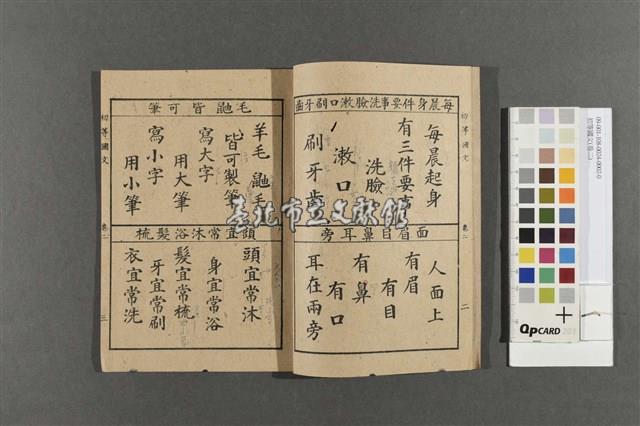 每晨身件要事洗臉漱口刷牙齒
每晨起身
有三件要事
洗臉
漱口
刷牙齒
面眉目鼻耳旁
人面上
有眉
有目
有鼻
有口
耳在兩旁
初等國文
卷二
二
毛鼬皆可筆
羊毛 鼬毛
皆可製筆
寫大字
用大筆
寫小字
用小筆
頭宜常沐浴髮梳
頭宜常沐
身宜常浴
髮宜常梳
牙宜常刷
衣宜常洗
初等國文
卷二
三
臺北市立文獻館
09-001-108-0024-0002-0
初等國文(卷二)
QPCARD 201